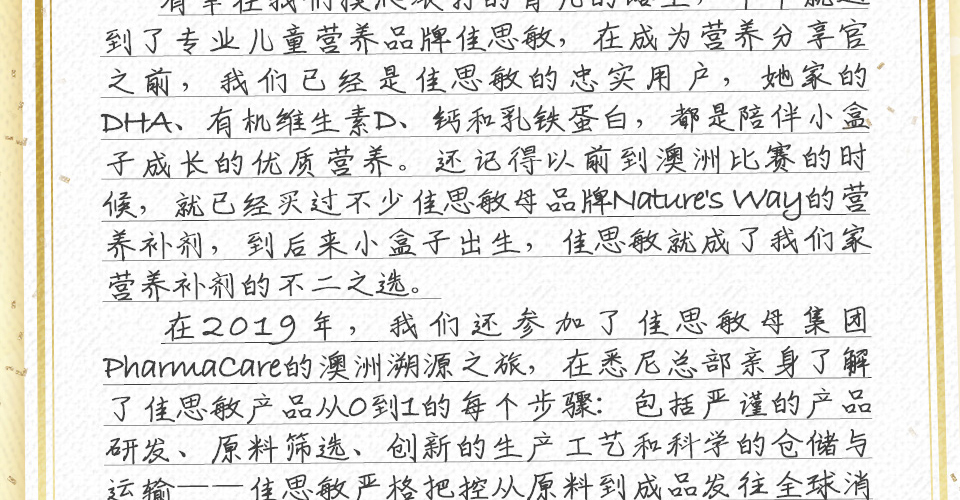 到了专业儿童营养品牌佳思敏，在成为营养分享官
之前，我们已经是佳思敏的忠实用户，她家的
DHA、有机维生素D、钙和乳铁蛋白，都是陪伴小盒
子成长的优质营养。还记得以前到澳洲比赛的时
候，就已经买过不少佳思敏母品牌Nature's Way的营
养补剂，到后来小盒子出生，佳思敏就成了我们家
营养补剂的不二之选。
在2019年，我们还参加了佳思敏母集团
PharmaCare的澳洲溯源之旅，在悉尼总部亲身了解
了佳思敏产品从0到1的每个步骤：包括严谨的产品
研发、原料筛选、创新的生产工艺和科学的仓储与
运输——佳思敏严格把控从原料到成品发往全球消